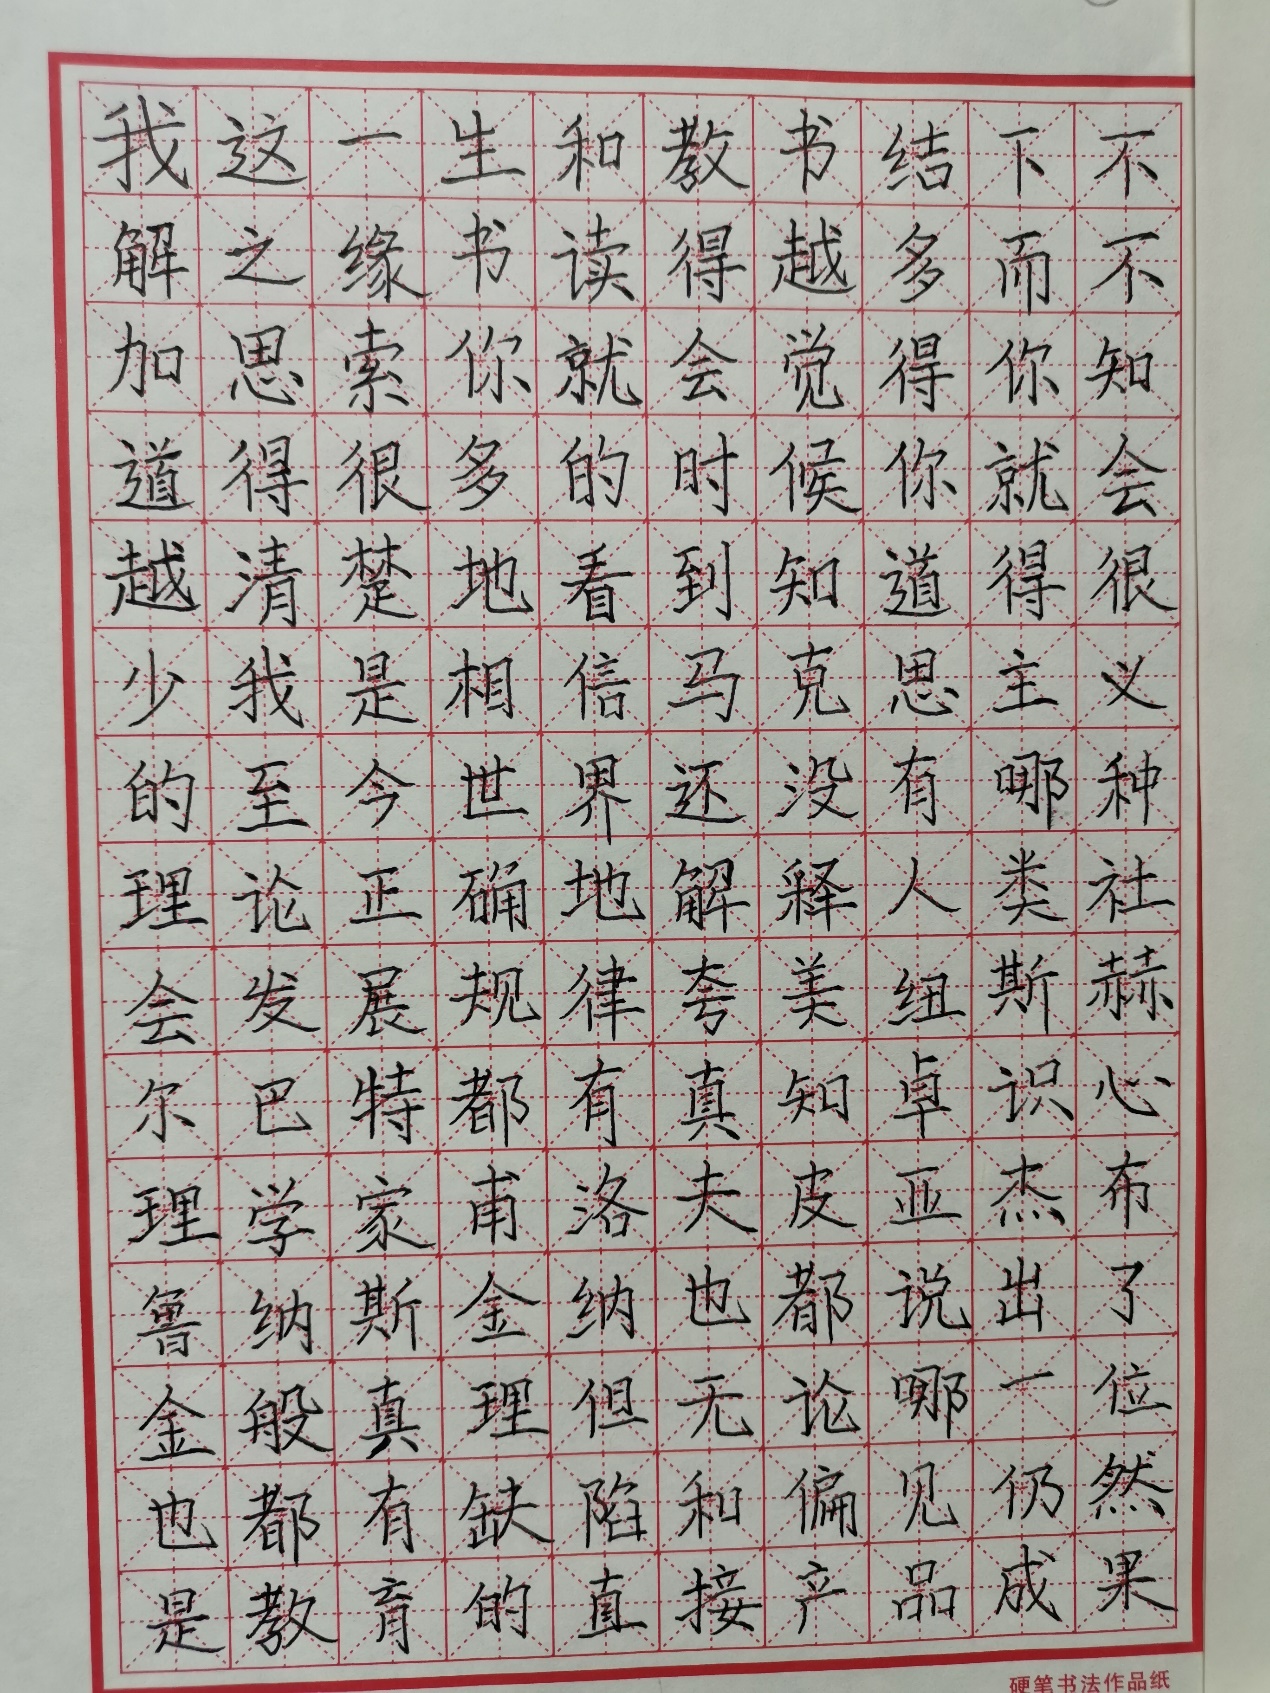 我这一生和教书结下不
解之缘书读得越多而不
加思索你就会觉得你知
道得很多的时候你就会
越清楚地看到知道得很
少我是相信马克思主义
的至今世界还没有哪种
理论正确地解释人类社
会发展规律夸美纽斯赫
尔巴特都有真知卓识心
理学家甫洛夫皮亚杰布
鲁纳斯金纳也都说出了
金般真理但无论哪一位
也都有缺陷和偏见仍然
是教育的直接产品成果
硬笔书法作品纸